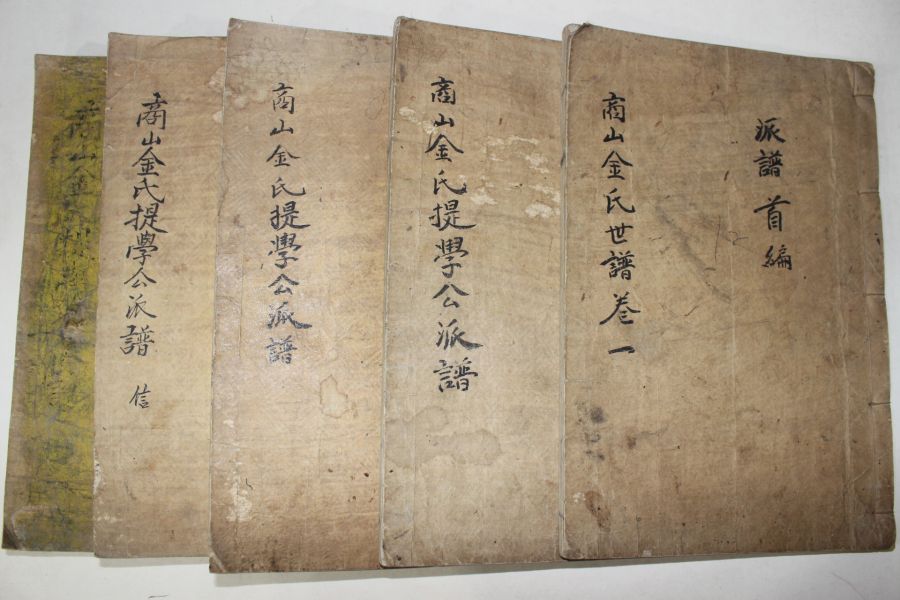 派譜首編
商山金氏世譜卷一
商山金氏提學公派譜
商山金氏提學公派譜
商山金氏提學公派譜 信
商山金